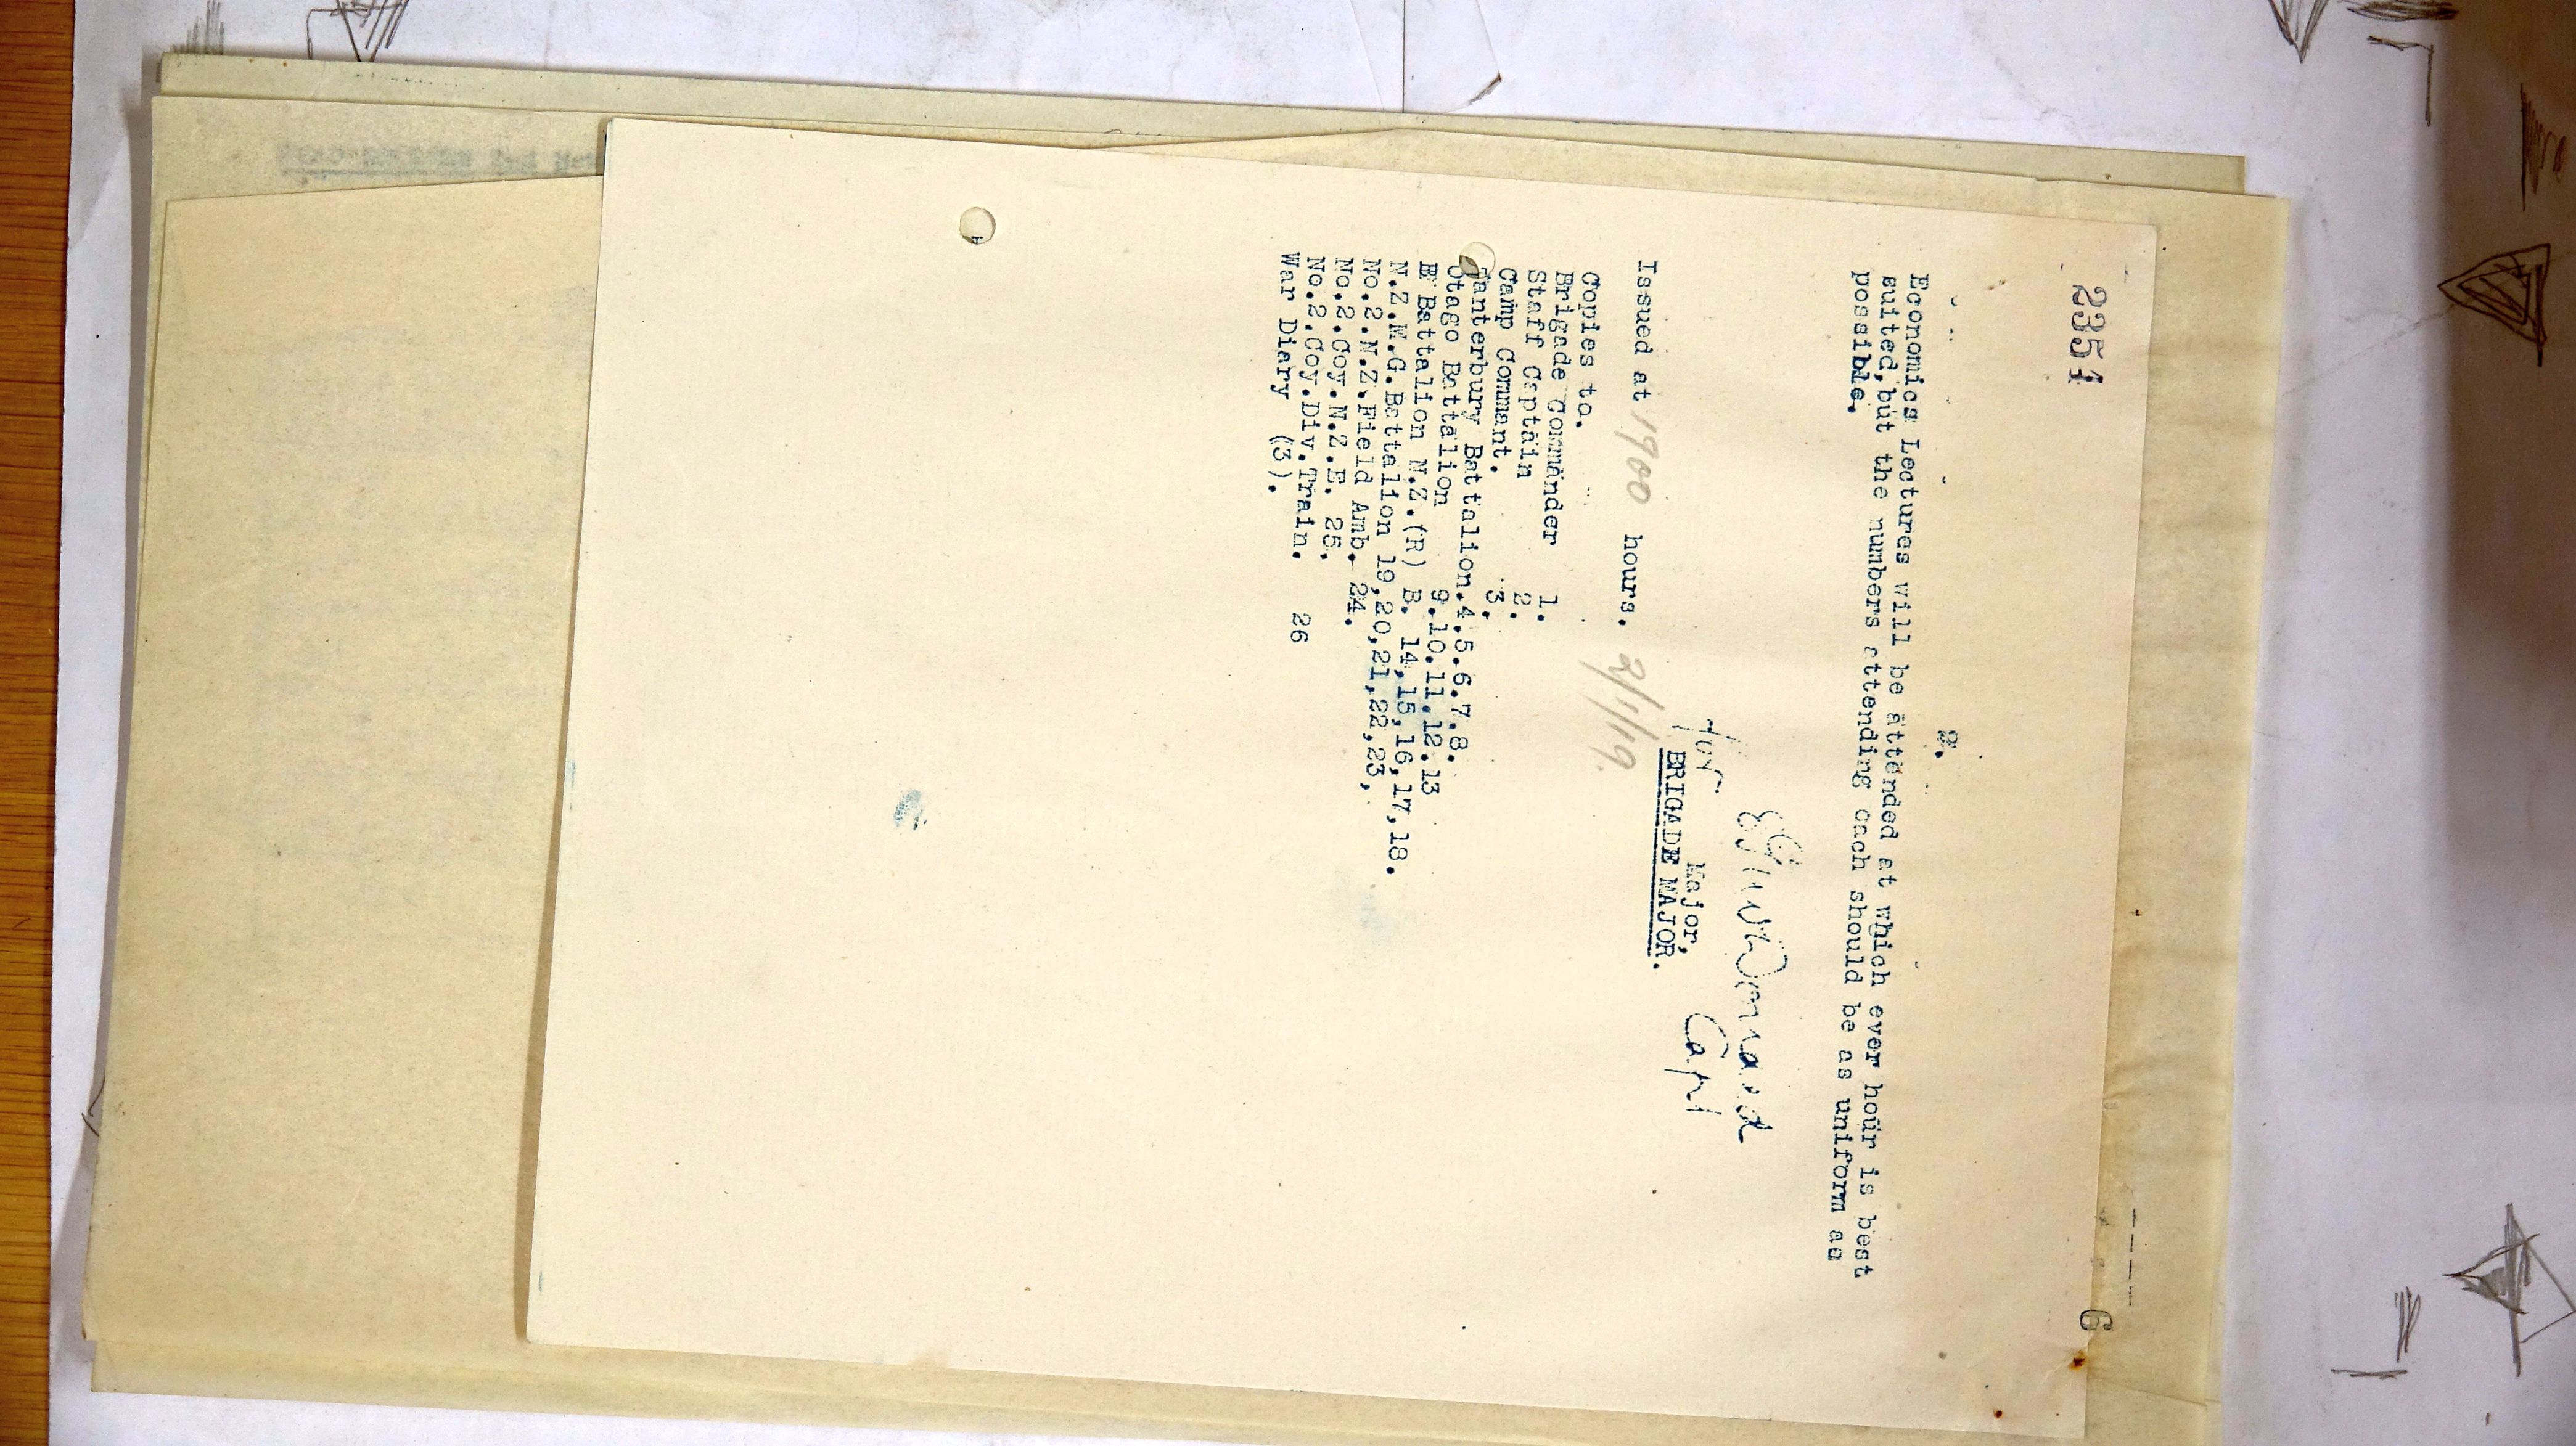 2351
2.
Economics Lectures will be attended at which ever hour is best
suited, but the numbers attending each should be as uniform as
possible.
for
Capt
Major,
BRIGADE MAJOR.
Issued at 1900 hours. 2/1/19.
Copies to.
Brigade Commander 1.
Staff Captain 2.
Camp Commant. 3.
Canterbury Battalion.4.5.6.7.8.
Otago Battalion 9.10.11.12.13
E Battalion N.Z.(R) B. 14,15,16,17,18.
N.Z.M.G.Battalion 19,20,21,22,23,
No.2.N.Z.Field Amb. 24.
No.2.Coy.N.Z.E. 25.
No.2.Coy.Div.Train. 26
War Diary (3).
6